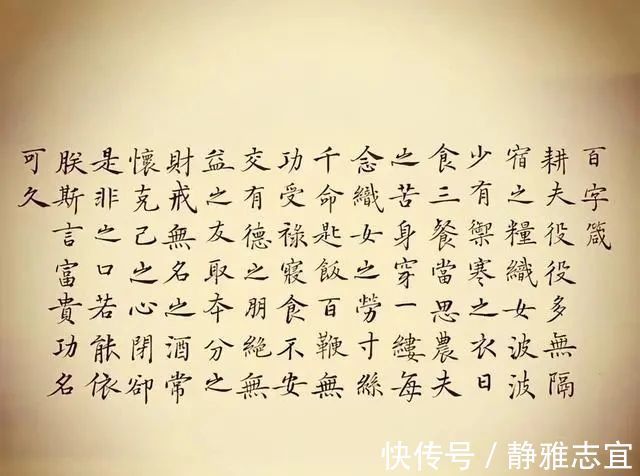 百字箴
耕夫役役多無隔
宿之糧織女波波
少有禦寒之衣日
食三餐當思農夫
之苦身穿一縷每
念織女之勞寸絲
千命匙飯百鞭無
功受祿寢食不安
交有德之朋絕無
益之友取夲分之
財戒無名之酒常
懷克己之心閉卻
是非之口若能依
朕斯言富貴功名
可久
快传号 / 静雅志宜